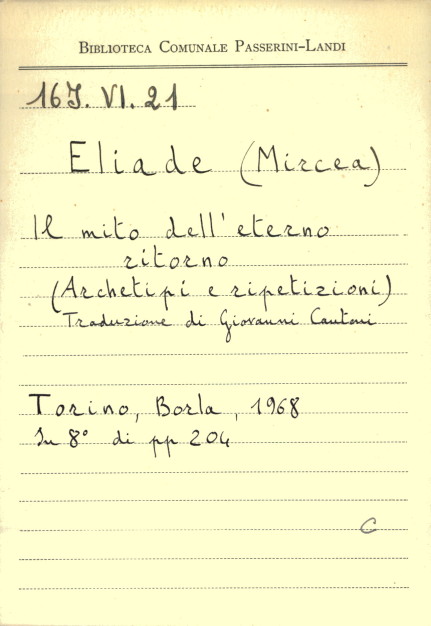 BIBLIOTECA COMUNALE PASSERINI-LANDI
16J. VI. 21
Eliade (Mircea)
Il mito dell'eterno
ritorno
(Archetipi e ripetizioni)
Traduzione di Giovanni Cantoni
Torino, Borla, 1968
In 8° di pp 204
C